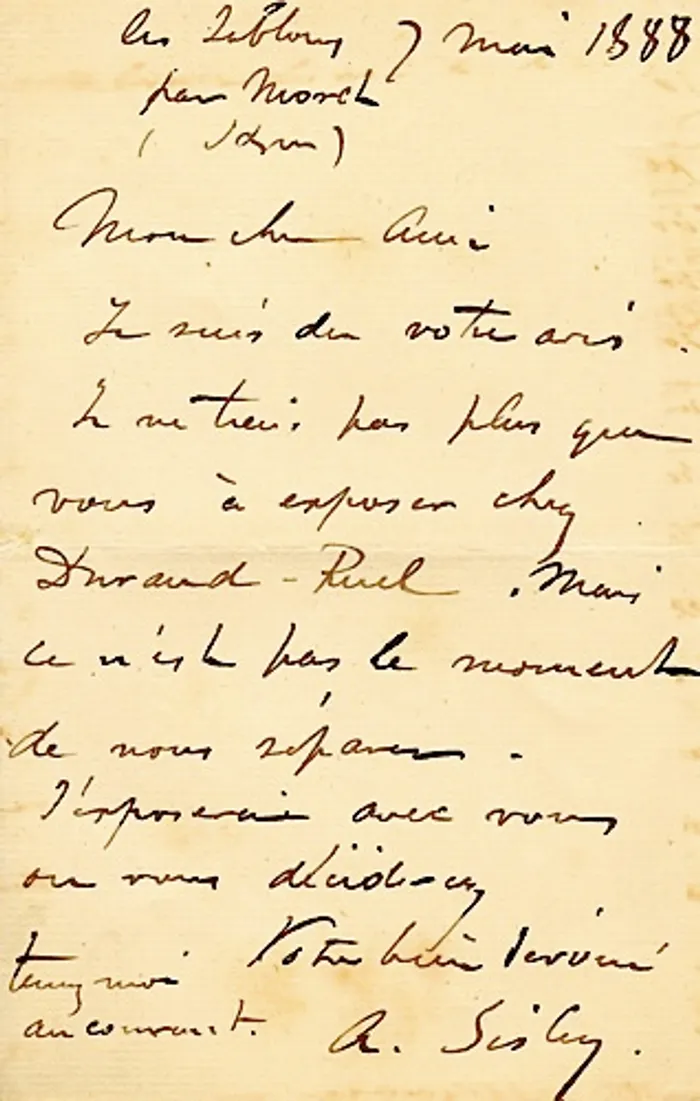 les Sablons 7 mai 1888
par Moret
(
Mon cher Ami
Je suis de votre avis.
Je ne tiens pas plus que
vous à exposer chez
Durand-Ruel. Mais
ce n'est pas le moment
de nous séparer.
J'exposerai avec vous
où vous déciderez
Votre bien dévoué
tenez moi
au courant.
A. Sisley.